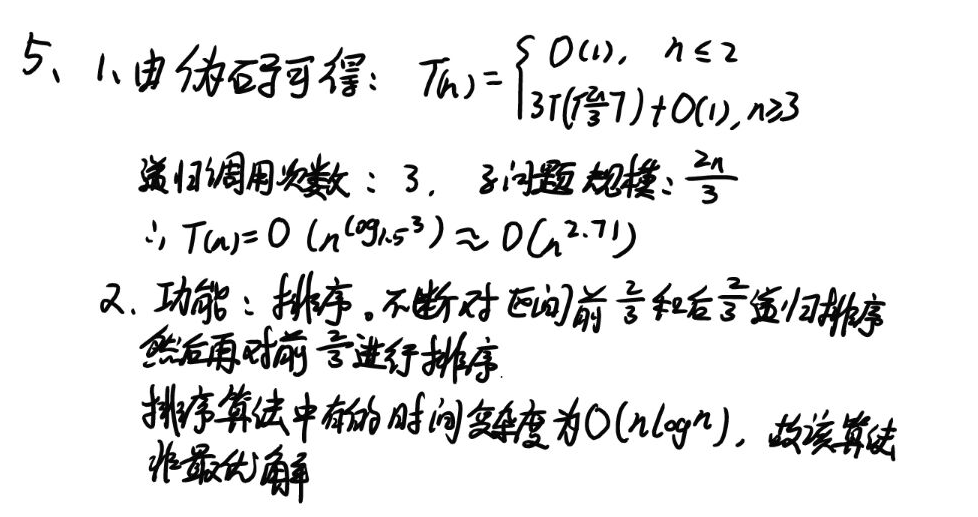 5、1、由伪码可得： T(n) = { O(1), n ≤ 2
3T(⌈2n/3⌉) + O(1), n≥3
递归调用次数：3， 子问题规模：2n/3
∴ T(n) = O(n^log₁.₅3) ≈ O(n^2.71)
2. 功能：排序。不断对区间前 2/3 和后 2/3 递归排序
然后再对前 2/3 进行排序.
排序算法中有的时间复杂度为O(nlogn)，故该算法
非最优解